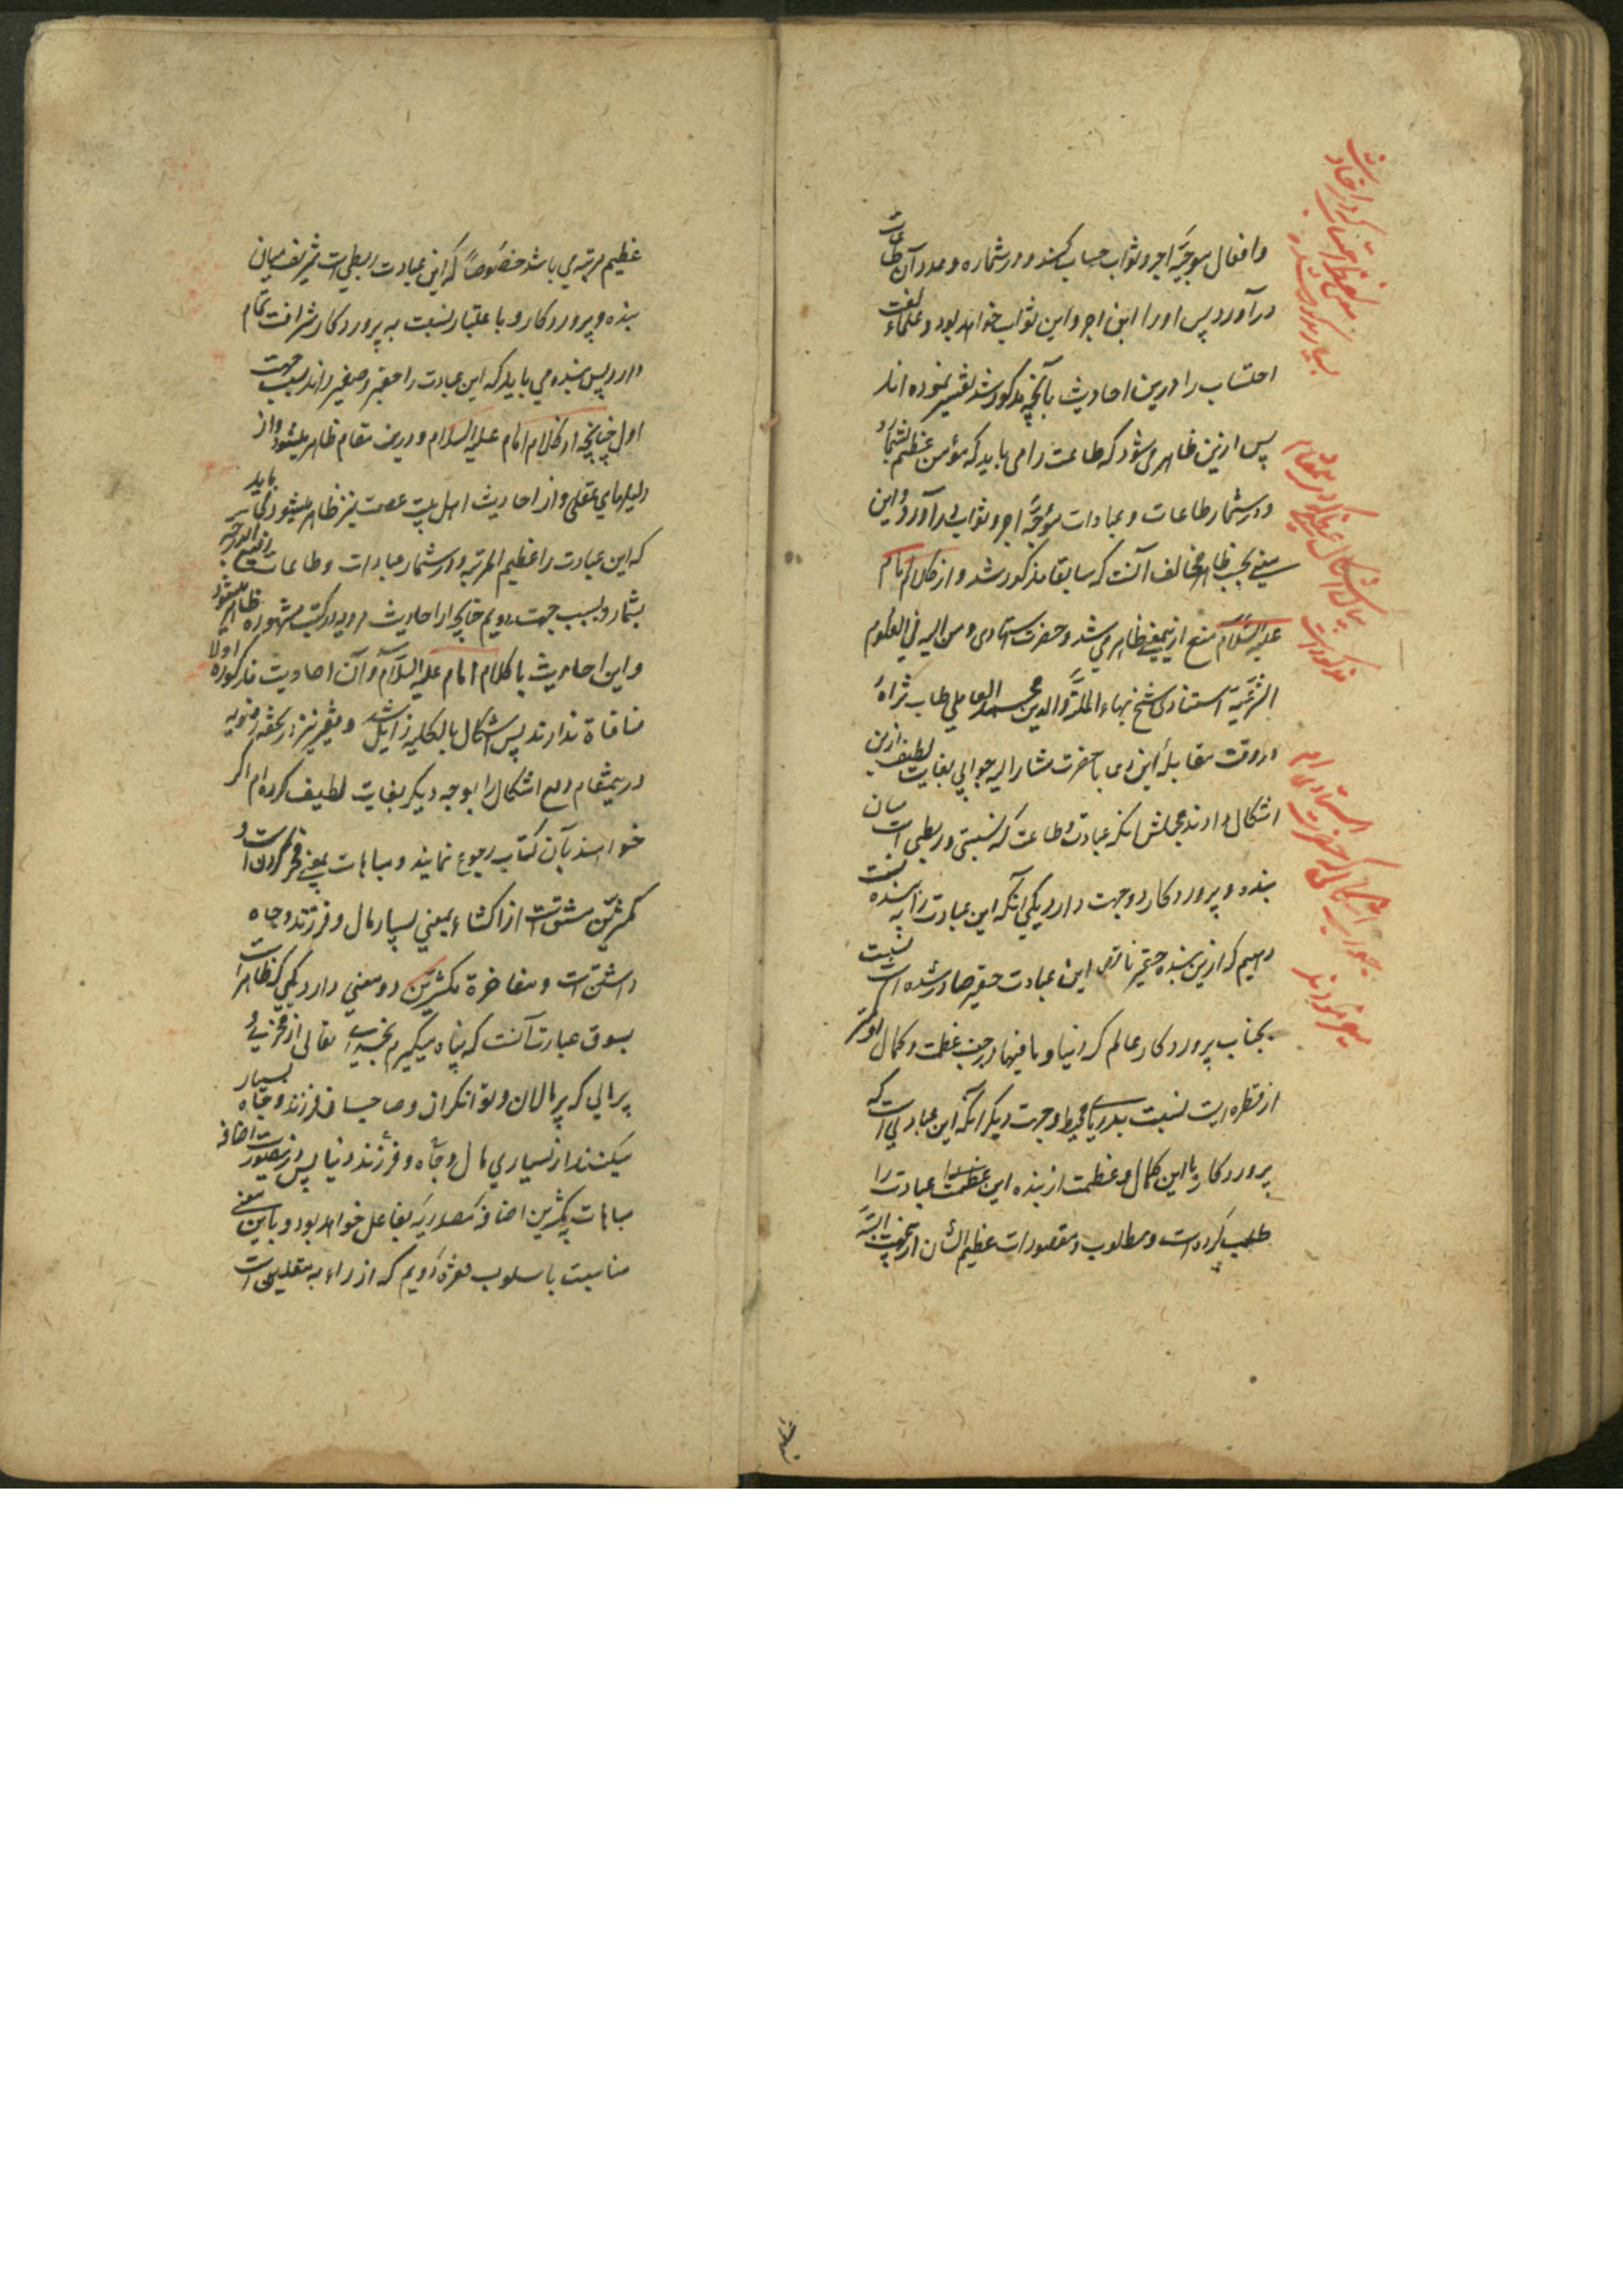 وافعال موجبهٔ اجر و ثواب حساب کند و در شماره و عدد آن طاعات
درآورد پس او را این اجر و این ثواب خواهد بود و علماء لغت
احتساب را درین احادیث بآنچه مذکور شد تفسیر نموده اند
پس ازین ظاهر می شود که طاعت را می باید که مؤمن عظیم شمارد
و در شمار طاعات و عبادات موجبهٔ اجر و ثواب درآورد و این
معنی بحسب ظاهر مخالف آنست که سابقا مذکور شد و از کلام امام
علیه السلام منع ازیمعنی ظاهر می شد و حضرت استادی و من الیه فی العلوم
الشرعیة استنادی شیخ بهاء الملة والدین محمد العاملی طاب ثراه
در وقت مقابلهٔ این دعا با حضرت مشار الیه جوابی بغایت لطیف ازین
اشکال دادند مجملش آنکه عبادت و طاعت که نسبتی و ربطی است میان
بنده و پروردکار دو جهت دارد یکی آنکه این عبادت را به بنده نسبت
دهیم که ازین بنده حقیر ناقص این عبادت حقیر صادر شده است نسبت
بجناب پروردکار عالم که دنیا و مافیها در جنب عظمت و کمال او کمتر
از قطره ایست نسبت بدریای محیط و جهت دیکر آنکه این عبادتی است که
پروردکار با این کمال و عظمت از بنده این عبادت را
طلب کرده است و مطلوب و مقصود ذات عظیم الشأن ازین جهت البته
عظیم
بیان اشکال عظیم که درین مقام
مذکور است
جواب اشکال که حضرت استادی
میفرمودند
عظیم مرتبه می باشد خصوصاً که این عبادت ربطی است شریف میان
بنده و پروردکار و باعتبار نسبت به پروردکار شرافت تمام
دارد پس بنده می باید که این عبادت را حقیر و صغیر داند بسبب جهت
اول چنانچه از کلام امام علیه السلام درین مقام ظاهر میشود و از
دلیلهای عقلی و از احادیث اهل بیت عصمت نیز ظاهر میشود و می باید
که این عبادت را عظیم المرتبه و در شمار عبادات و طاعات رفیع الدرجه
بشمارد بسبب جهت دویم چنانچه از احادیث مرویه در کتب مشهوره ظاهر میشود
و این احادیث با کلام امام علیه السلام و آن احادیث مذکوره اولا
منافاة ندارند پس اشکال بالکلیه زایل شد و فقیر نیز در تحفه رضویه
درینمقام دفع اشکال را بوجه دیکر بغایت لطیف کرده ام اکر
خواهند بآن کتاب رجوع نمایند و مباهات بمعنی فخر کردن است و
مکثرین مشتق است از اکثار بمعنی بسیار مال و فرزند و جاه
داشتن است و مفاخرة مکثرین دو معنی دارد یکی که ظاهر است
بسوق عبارت آنست که پناه میکیرم بخدای تعالی از فخری و
که پر مالان و توانکران و صاحبان فرزند و جاه بسیار
میکنند از بسیاری مال و جاه و فرزند دنیا پس درینصورت اضافه
مباهات بمکثرین اضافه مصدریه بفاعل خواهد بود و باین معنی
مناسبت باسلوب فقره دویم که ازراء به مقلین است